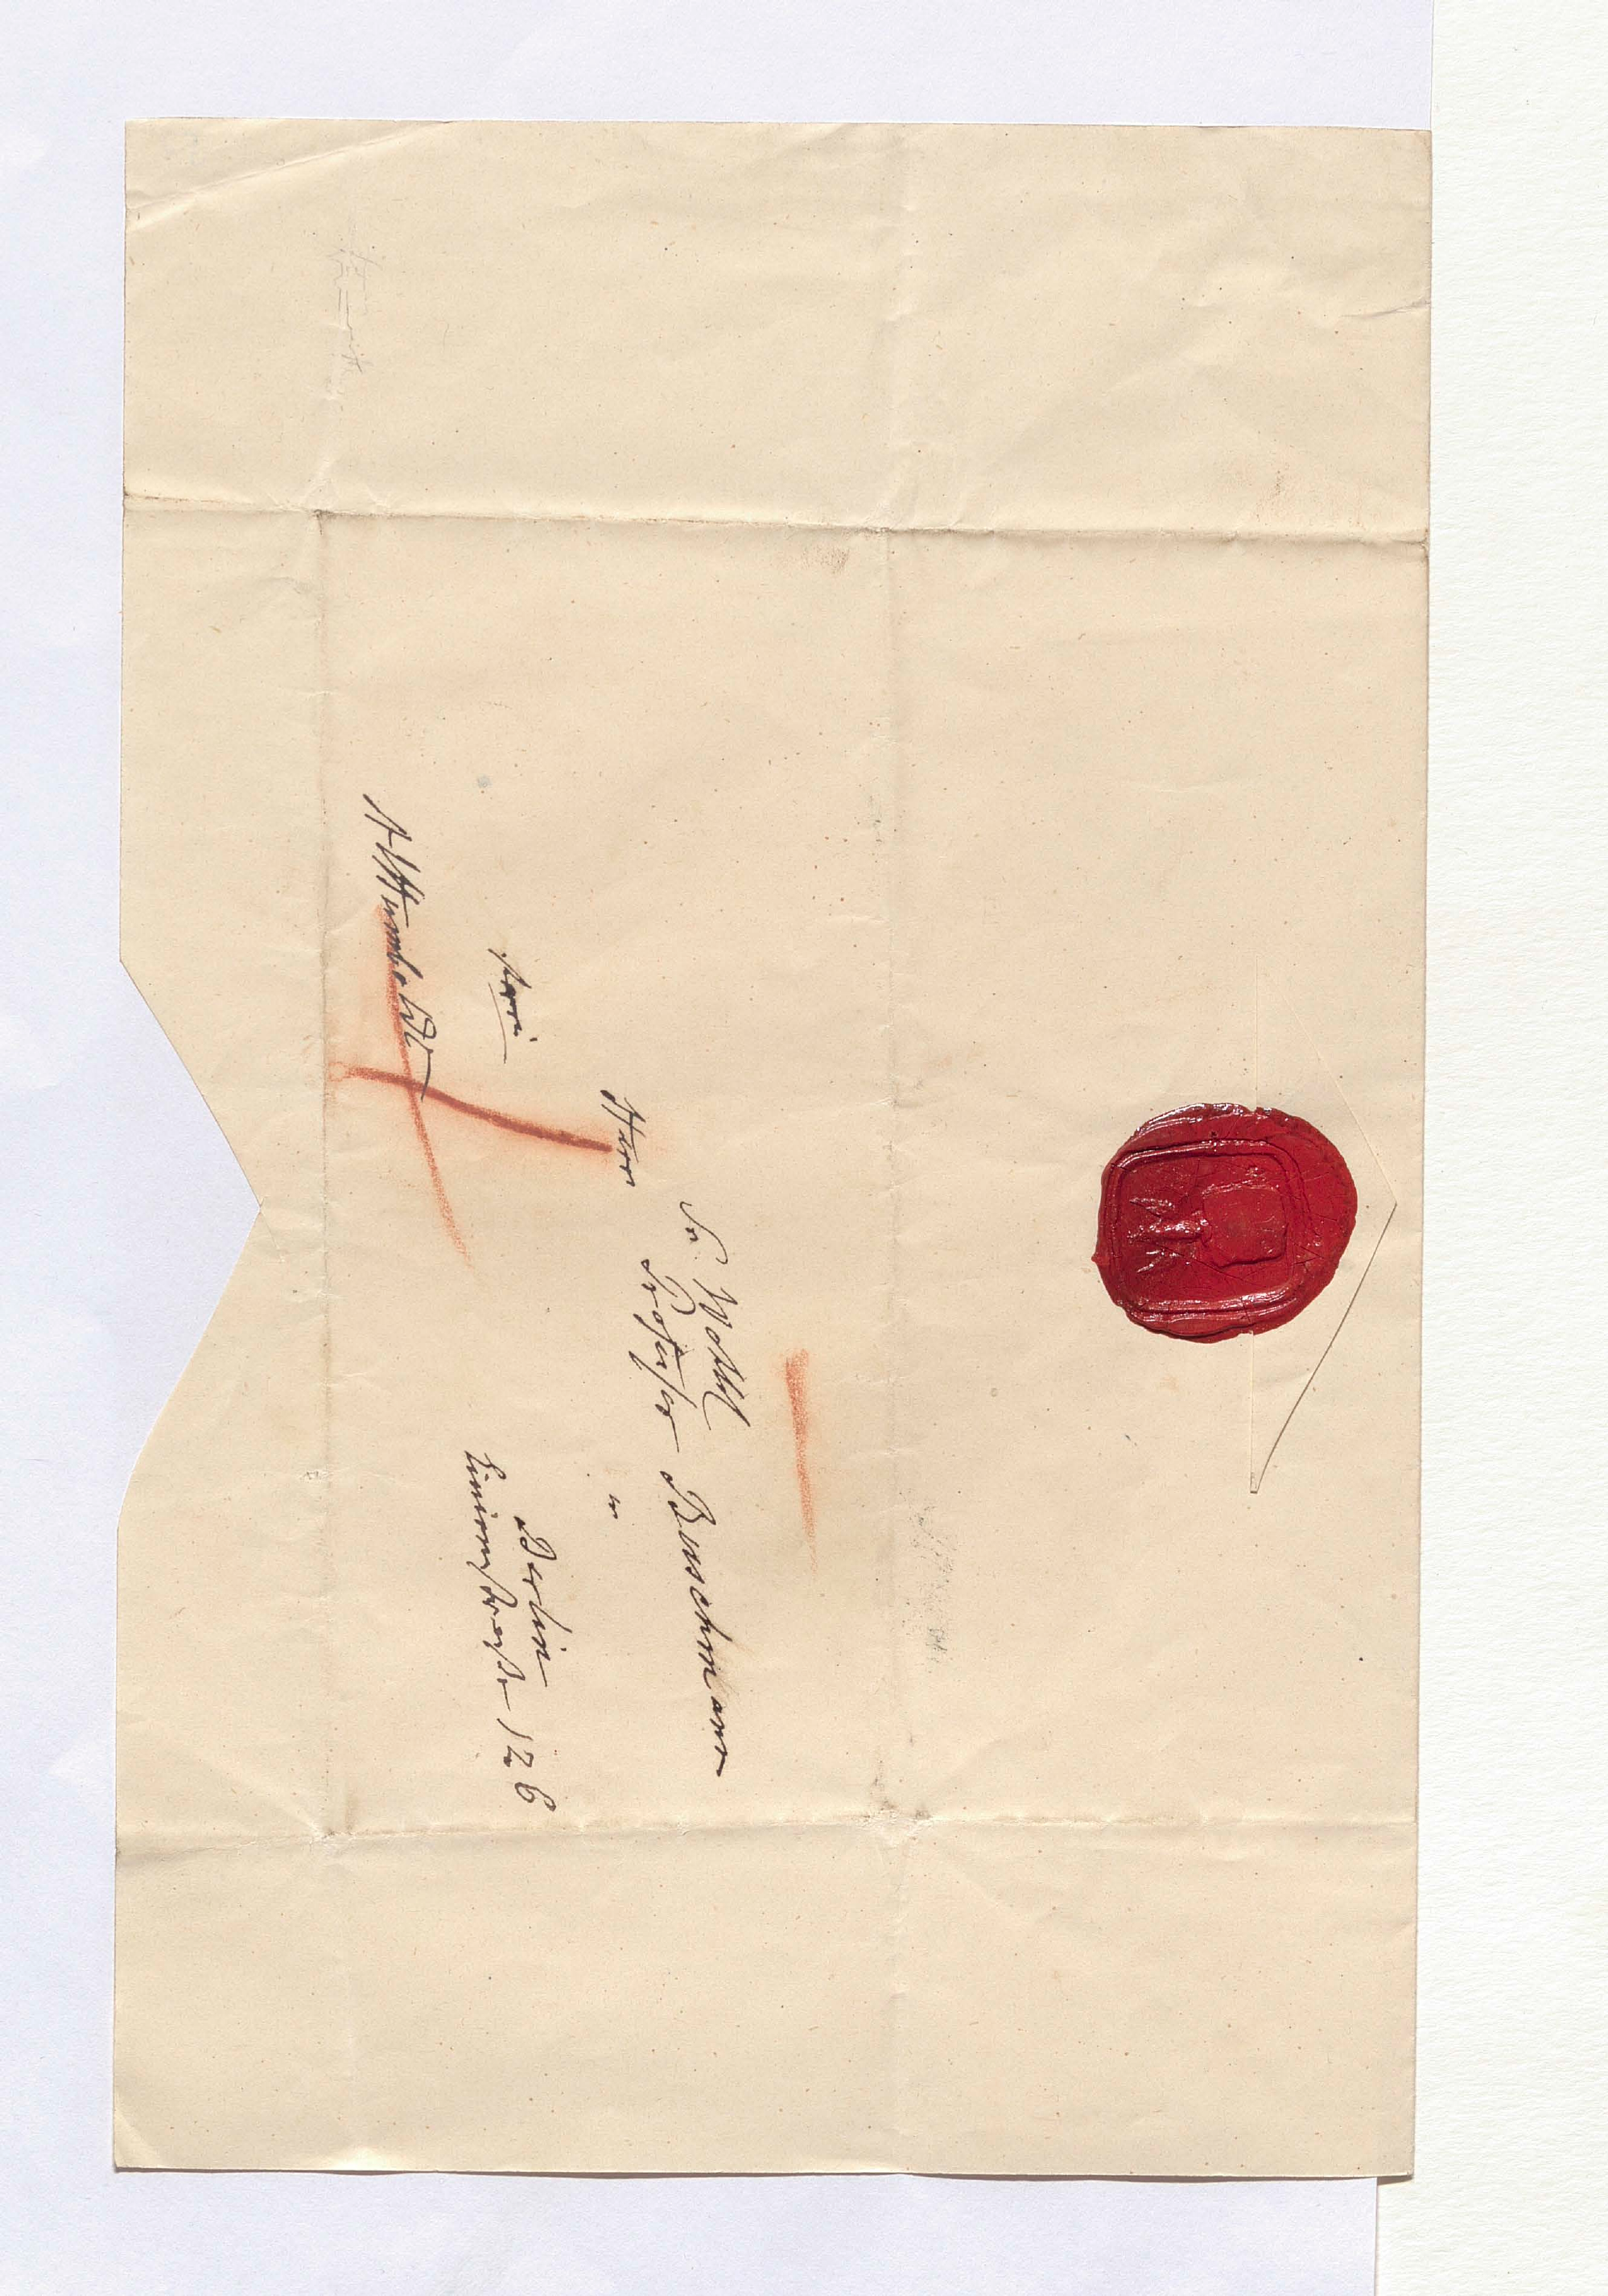 Sr. Wohl
Herrn Professor Buschmann
in
Berlin
Linienstraße 126
frei
AlHumboldt